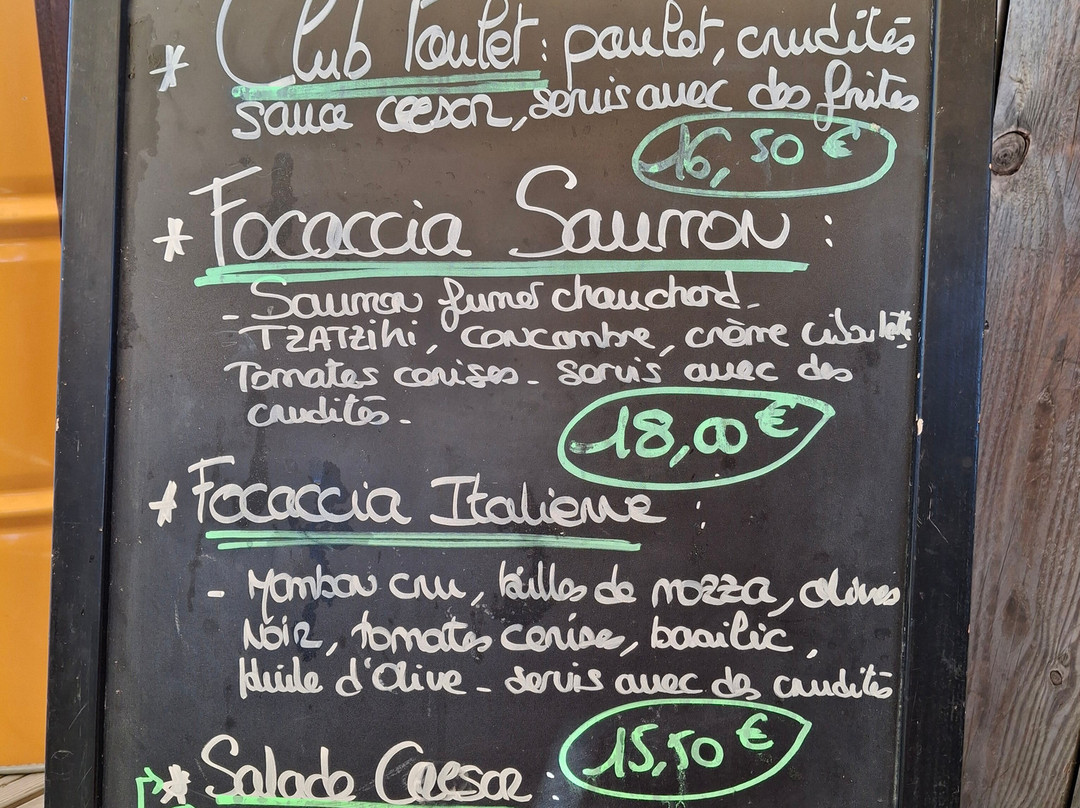 * Club Poulet : poulet, crudités
sauce ceesar, servis avec des frites
16,50 €
* Focaccia Saumon :
- Saumon fumer chauchord.
TZATZiki, concombre, crème ciboulette
Tomates cerises - servis avec des
crudités.
18,00 €
* Focaccia Italienne :
- Mambon cru, billes de mozza, olives
Noir, tomates cerises, basilic,
Huile d'olive - servis avec des crudités
15,50 €
* Salade Caesar :